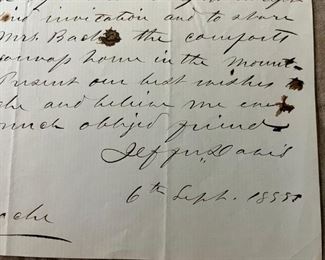 invitation and to share
Mrs. Bache the comforts
home in the mount
Present our best wishes
and believe me ever
much obliged friend
Jeffn. Davis
6th Sept. 1855.
ache